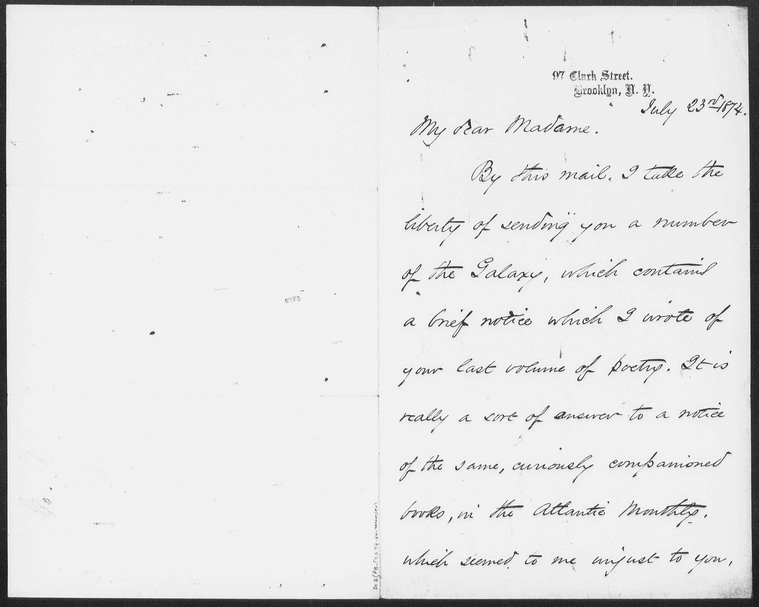 97 Clark Street.
Brooklyn, N. Y.
July 23rd 1874.
My dear Madame.
By this mail. I take the
liberty of sending you a number
of the Galaxy, which contains
a brief notice which I wrote of
your last volume of poetry. It is
really a sort of answer to a notice
of the same, curiously companioned
books, in the Atlantic Monthly.
which seemed to me unjust to you,